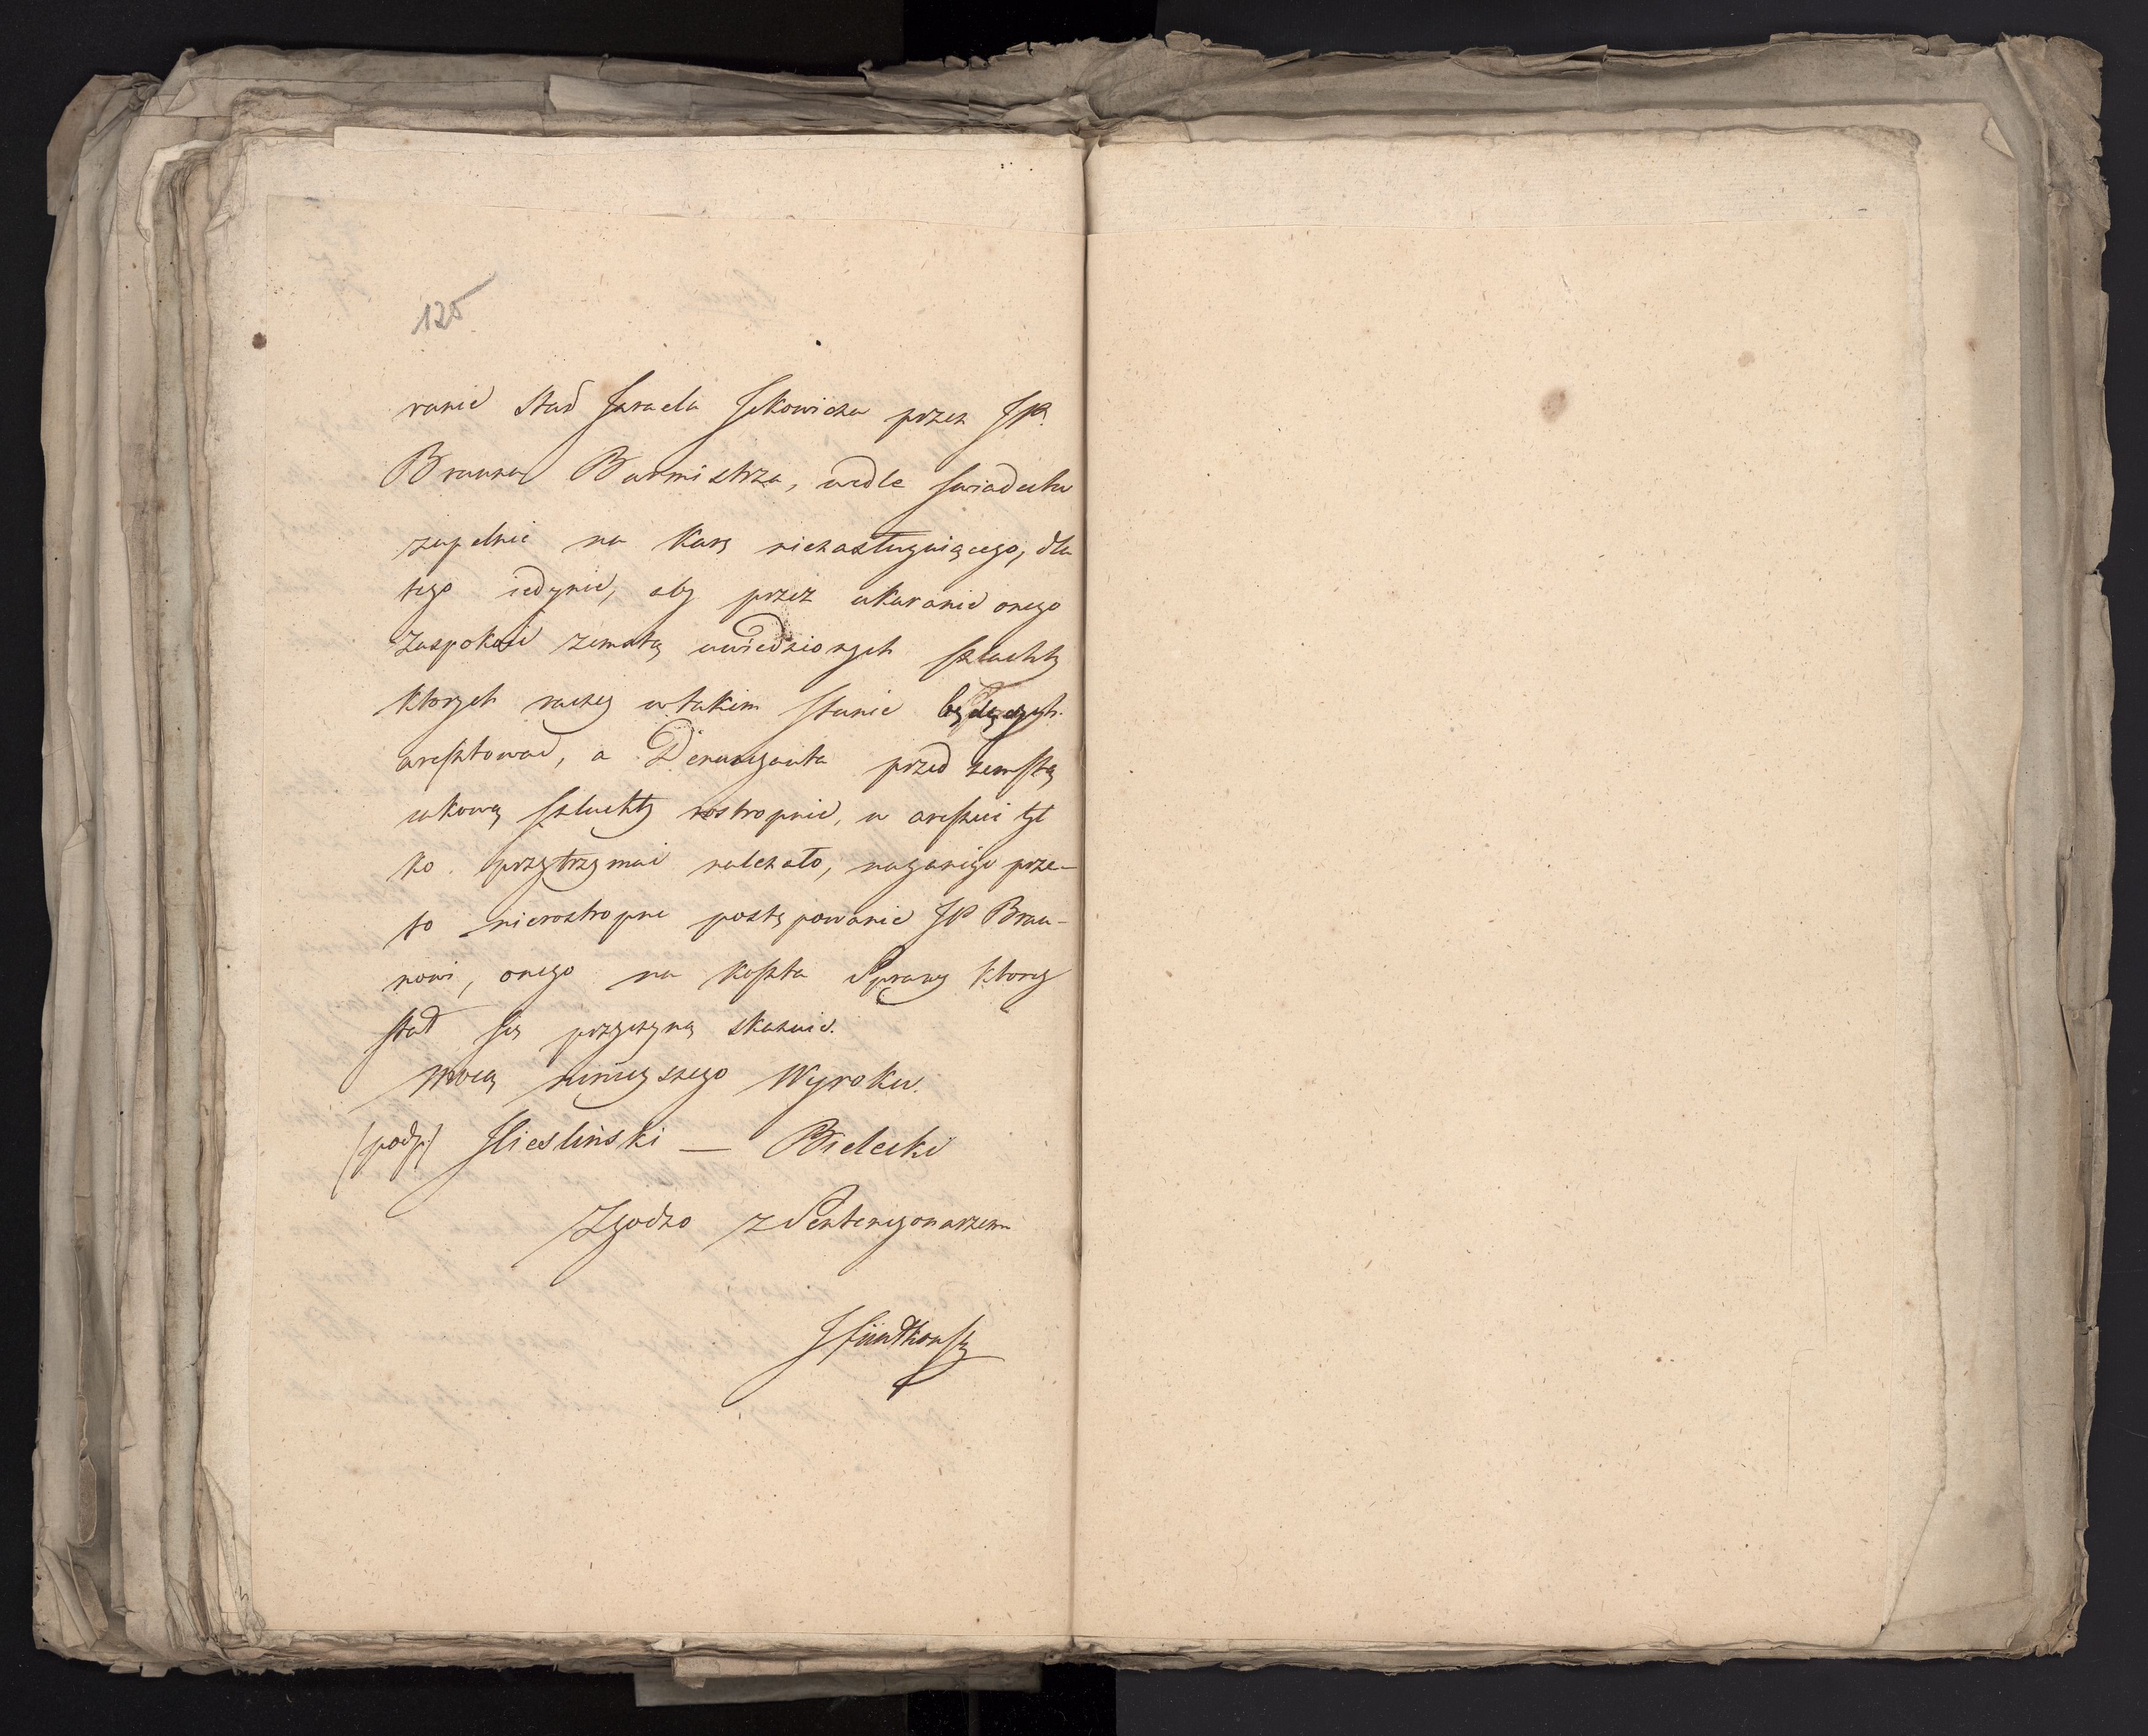 125
ranie Star Izraela Jckowicza przez JP.
Brauna Burmistrza, wedle swiadectw
zupełnie na karę niezasługuiącego, dla
tego iedynie, aby przez ukaranie onego
zaspokoić zemstę uwiedzionych szlachty
których raczey w takim stanie będących
aresztować, a Denuncyanta przed zemstą
takową szlachty rostropnie, w areszcie tyl
ko przytrzymać należało, naganiąc prze-
to nierostropne postępowanie JP Brau-
nowi, onego na koszta Sprawy którey
stał się przyczyną skazuie.
Mocą ninieyszego Wyroku.
(podp) Cieśliński — Bielecki
Zgodno z Sentencyonarzem